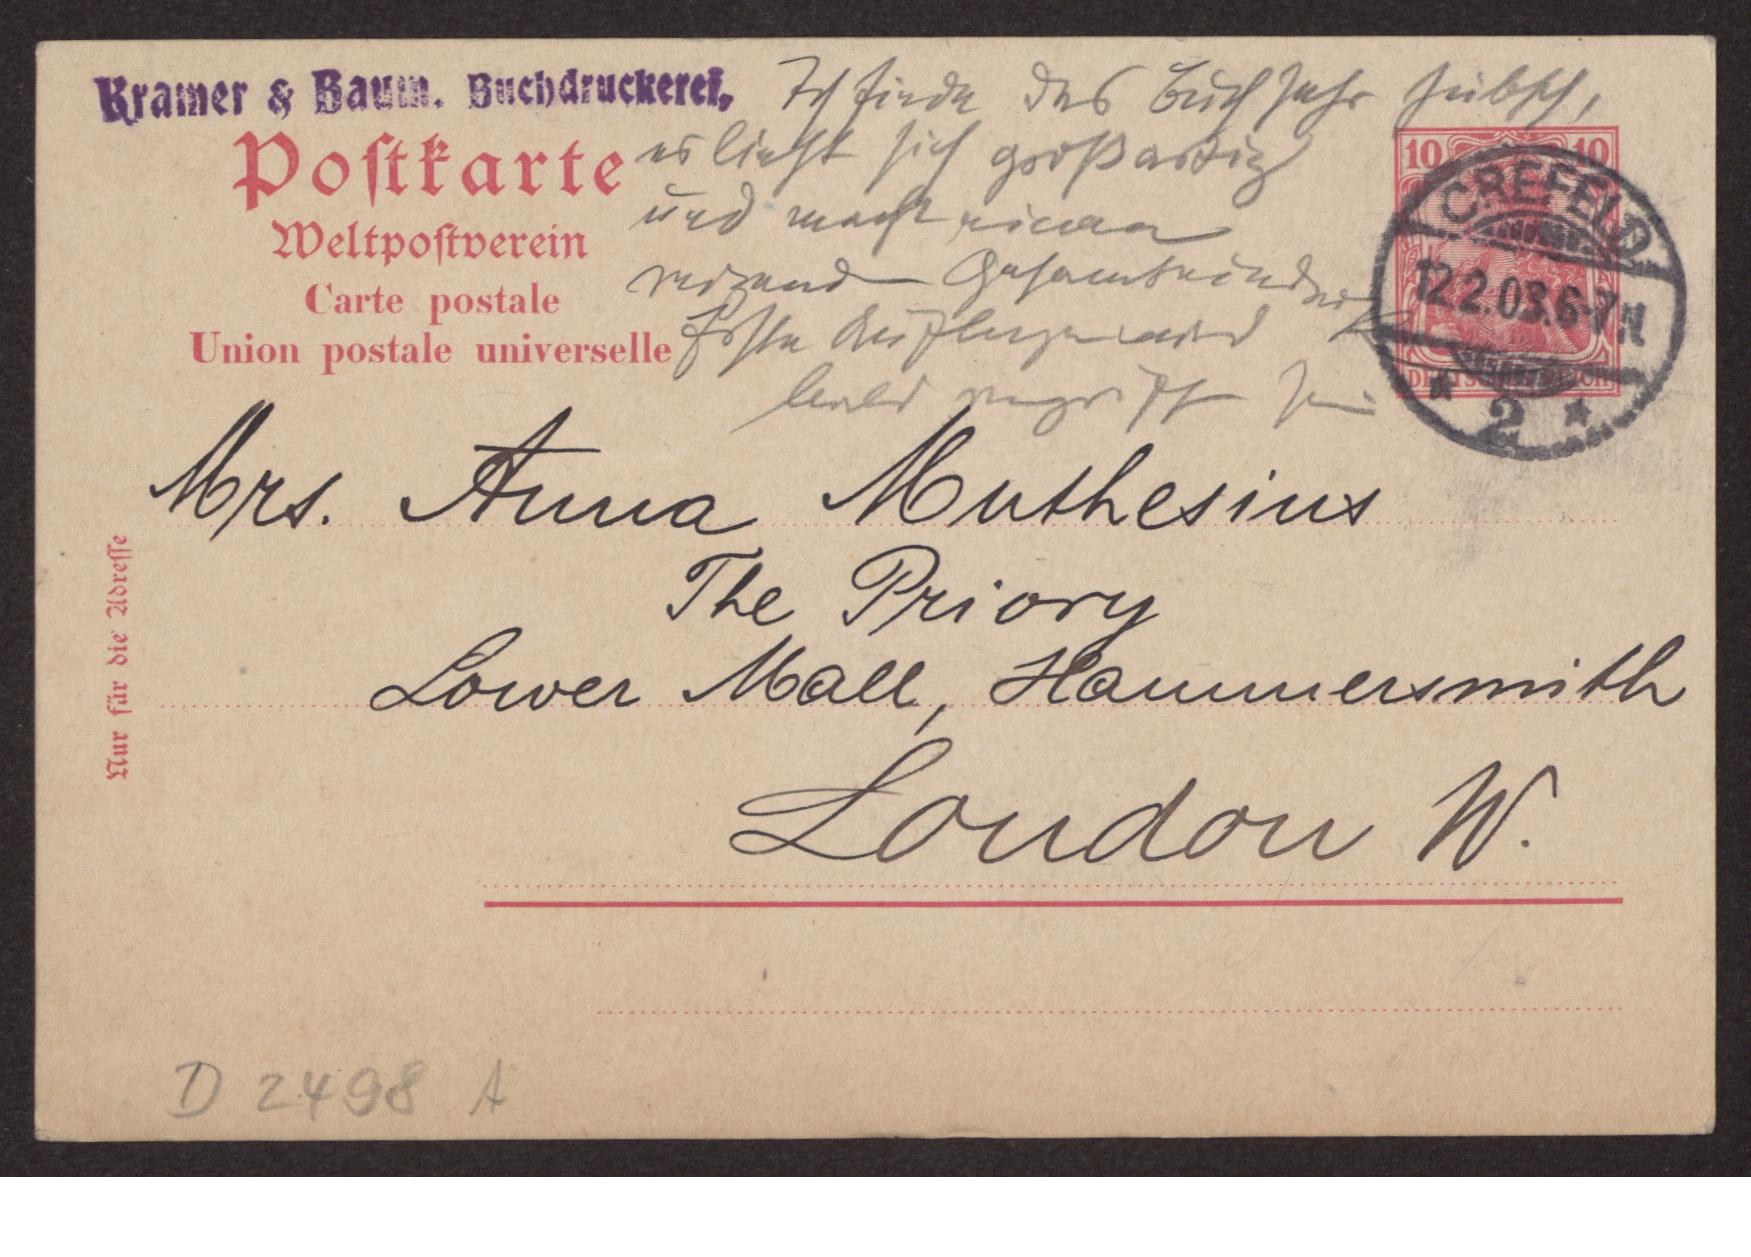 Kramer & Baum. Buchdruckerei,
Ich finde das Buch sehr hübsch,
es liest sich großartig
und macht einen
reizenden Gesamteindruck
Erste Auflage wird
bald vergriffen sein
Postkarte
Weltpostverein
Carte postale
Union postale universelle
10 10
DEUTSCHES REICH
CREFELD
12.2.03.6-7N
* 2 *
Nur für die Adresse
Mrs. Anna Muthesius
The Priory
Lower Mall, Hammersmith
London W.
D 2498 A